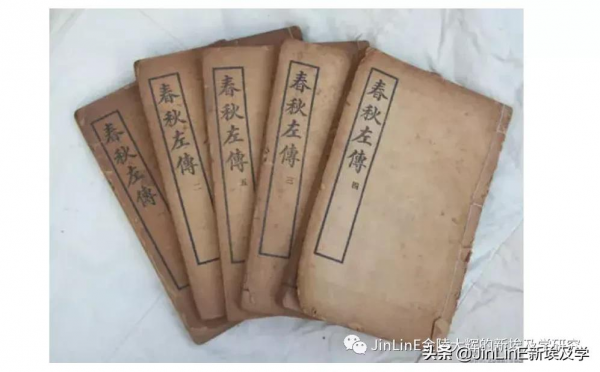 春秋左傳
春秋左傳
二
春秋左傳
五
春秋左傳
三
春秋左傳
四
JinLinE金陵大辉的新埃及学研究
头条@JinLinE新埃及学